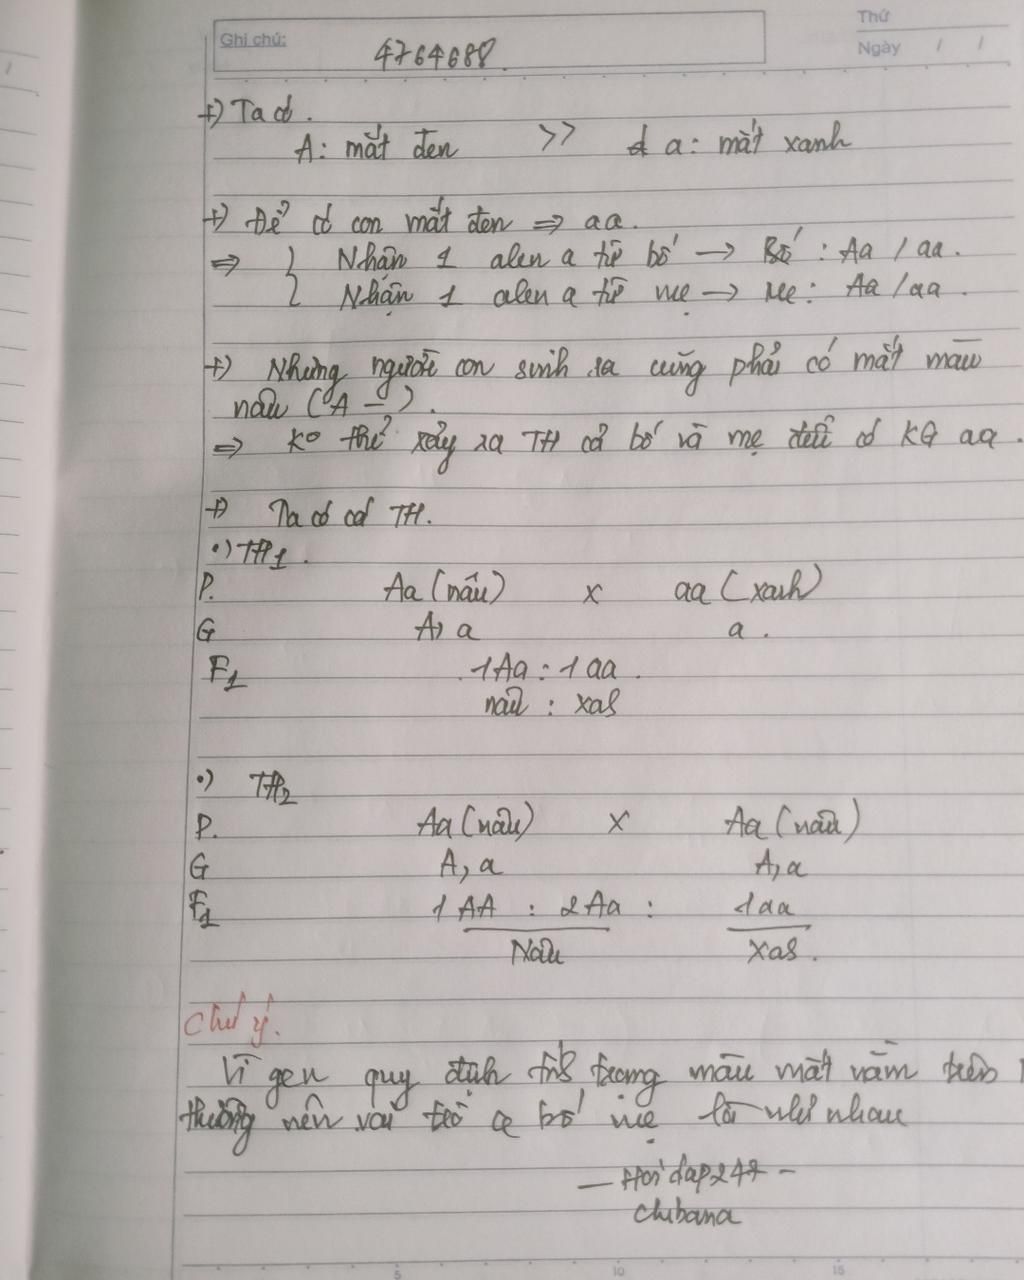 Thứ
Ghi chú: 4764688.
Ngày / /
+) Ta có.
A: mắt đen >> a: mắt xanh
+) Để có con mắt đen => aa.
=> { Nhận 1 alen a từ bố -> Bố: Aa / aa.
Nhận 1 alen a từ mẹ -> Mẹ: Aa / aa.
+) Nhưng người con sinh ra cũng phải có mắt màu
nâu (A-).
=> ko thể xảy ra TH cả bố và mẹ đều có KG aa.
+) Ta có các TH.
•) TH1.
P. Aa (nâu) x aa (xanh)
G A, a a.
F1 1Aa : 1aa.
nâu : xas
•) TH2
P. Aa (nâu) x Aa (nâu)
G A, a A, a
F1 1AA : 2Aa : 1aa
Nâu Xas.
Chú ý.
Vì gen quy định trạng màu mắt nằm trên
thường nên vai trò bố mẹ là như nhau
— Hoidap247 —
Chibana
5 10 15